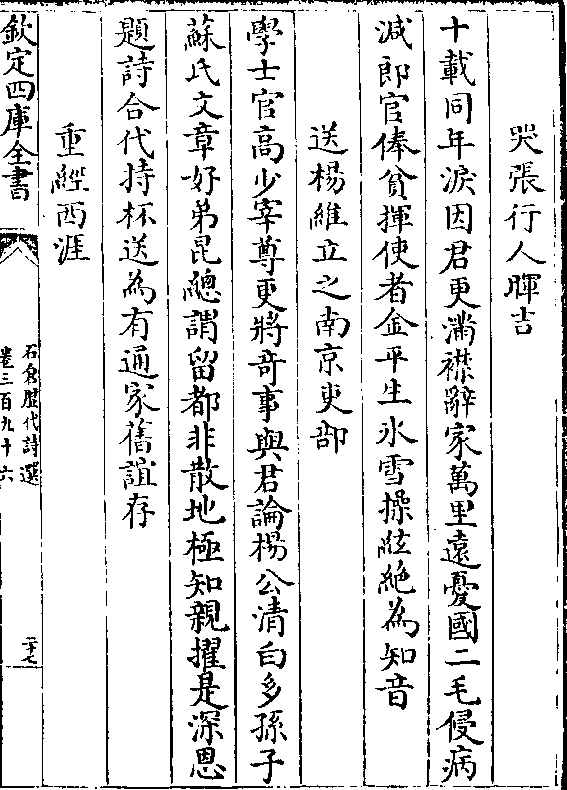 哭張行人暉吉
十載同年淚因君更滿襟辭家萬里遠憂國二毛侵病
減郎官俸貧揮使者金平生氷雪操絃絶為知音
送楊維立之南京吏部
學士官高少宰尊更將竒事與君論楊公清白多孫子
蘇氏文章好弟昆總謂留都非散地極知親擢是深恩
題詩合代持杯送為有通家舊誼存
重經西涯
欽定四庫全書
石倉歷代詩選
卷三百九十六
二十七